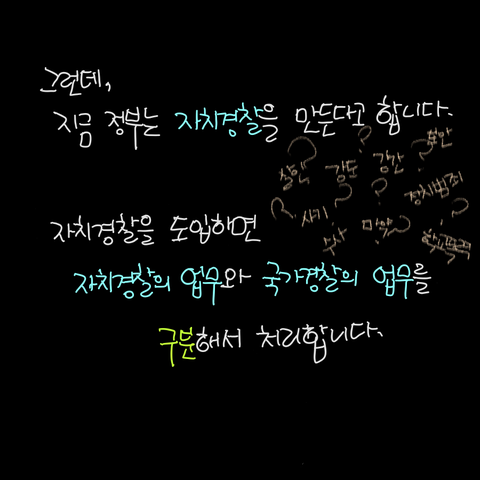 그런데,
지금 정부는 자치경찰을 만든다고 합니다.
? ? 치안
살인 강도 강간 ?
? 정치범죄
? 사기 ?
수사 마약 학교폭력
자치경찰을 도입하면
자치경찰의 업무와 국가경찰의 업무를
구분해서 처리합니다.